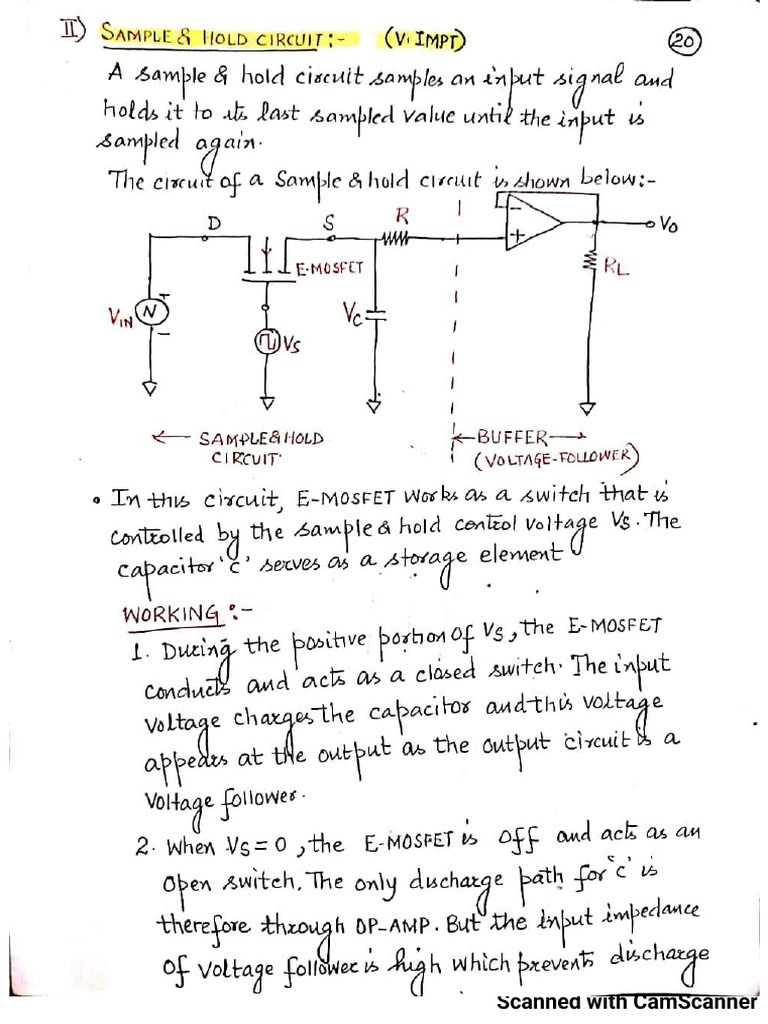 II) SAMPLE & HOLD CIRCUIT:- (V. IMPT)
20
A sample & hold circuit samples an input signal and
holds it to its last sampled value until the input is
sampled again.
The circuit of a Sample & hold circuit is shown below:-
D
S
R
-
+
Vo
E-MOSFET
RL
VIN
+
N
-
VS
VC
← SAMPLE & HOLD
CIRCUIT
← BUFFER →
(VOLTAGE-FOLLOWER)
• In this circuit, E-MOSFET works as a switch that is
controlled by the sample & hold control voltage Vs. The
capacitor 'C' serves as a storage element
WORKING :-
1. During the positive portion of Vs, the E-MOSFET
conducts and acts as a closed switch. The input
voltage charges the capacitor and this voltage
appears at the output as the output circuit is a
voltage follower.
2. When Vs = 0, the E-MOSFET is off and acts as an
open switch. The only discharge path for 'C' is
therefore through OP-AMP. But the input impedance
of voltage follower is high which prevents discharge
Scanned with CamScanner